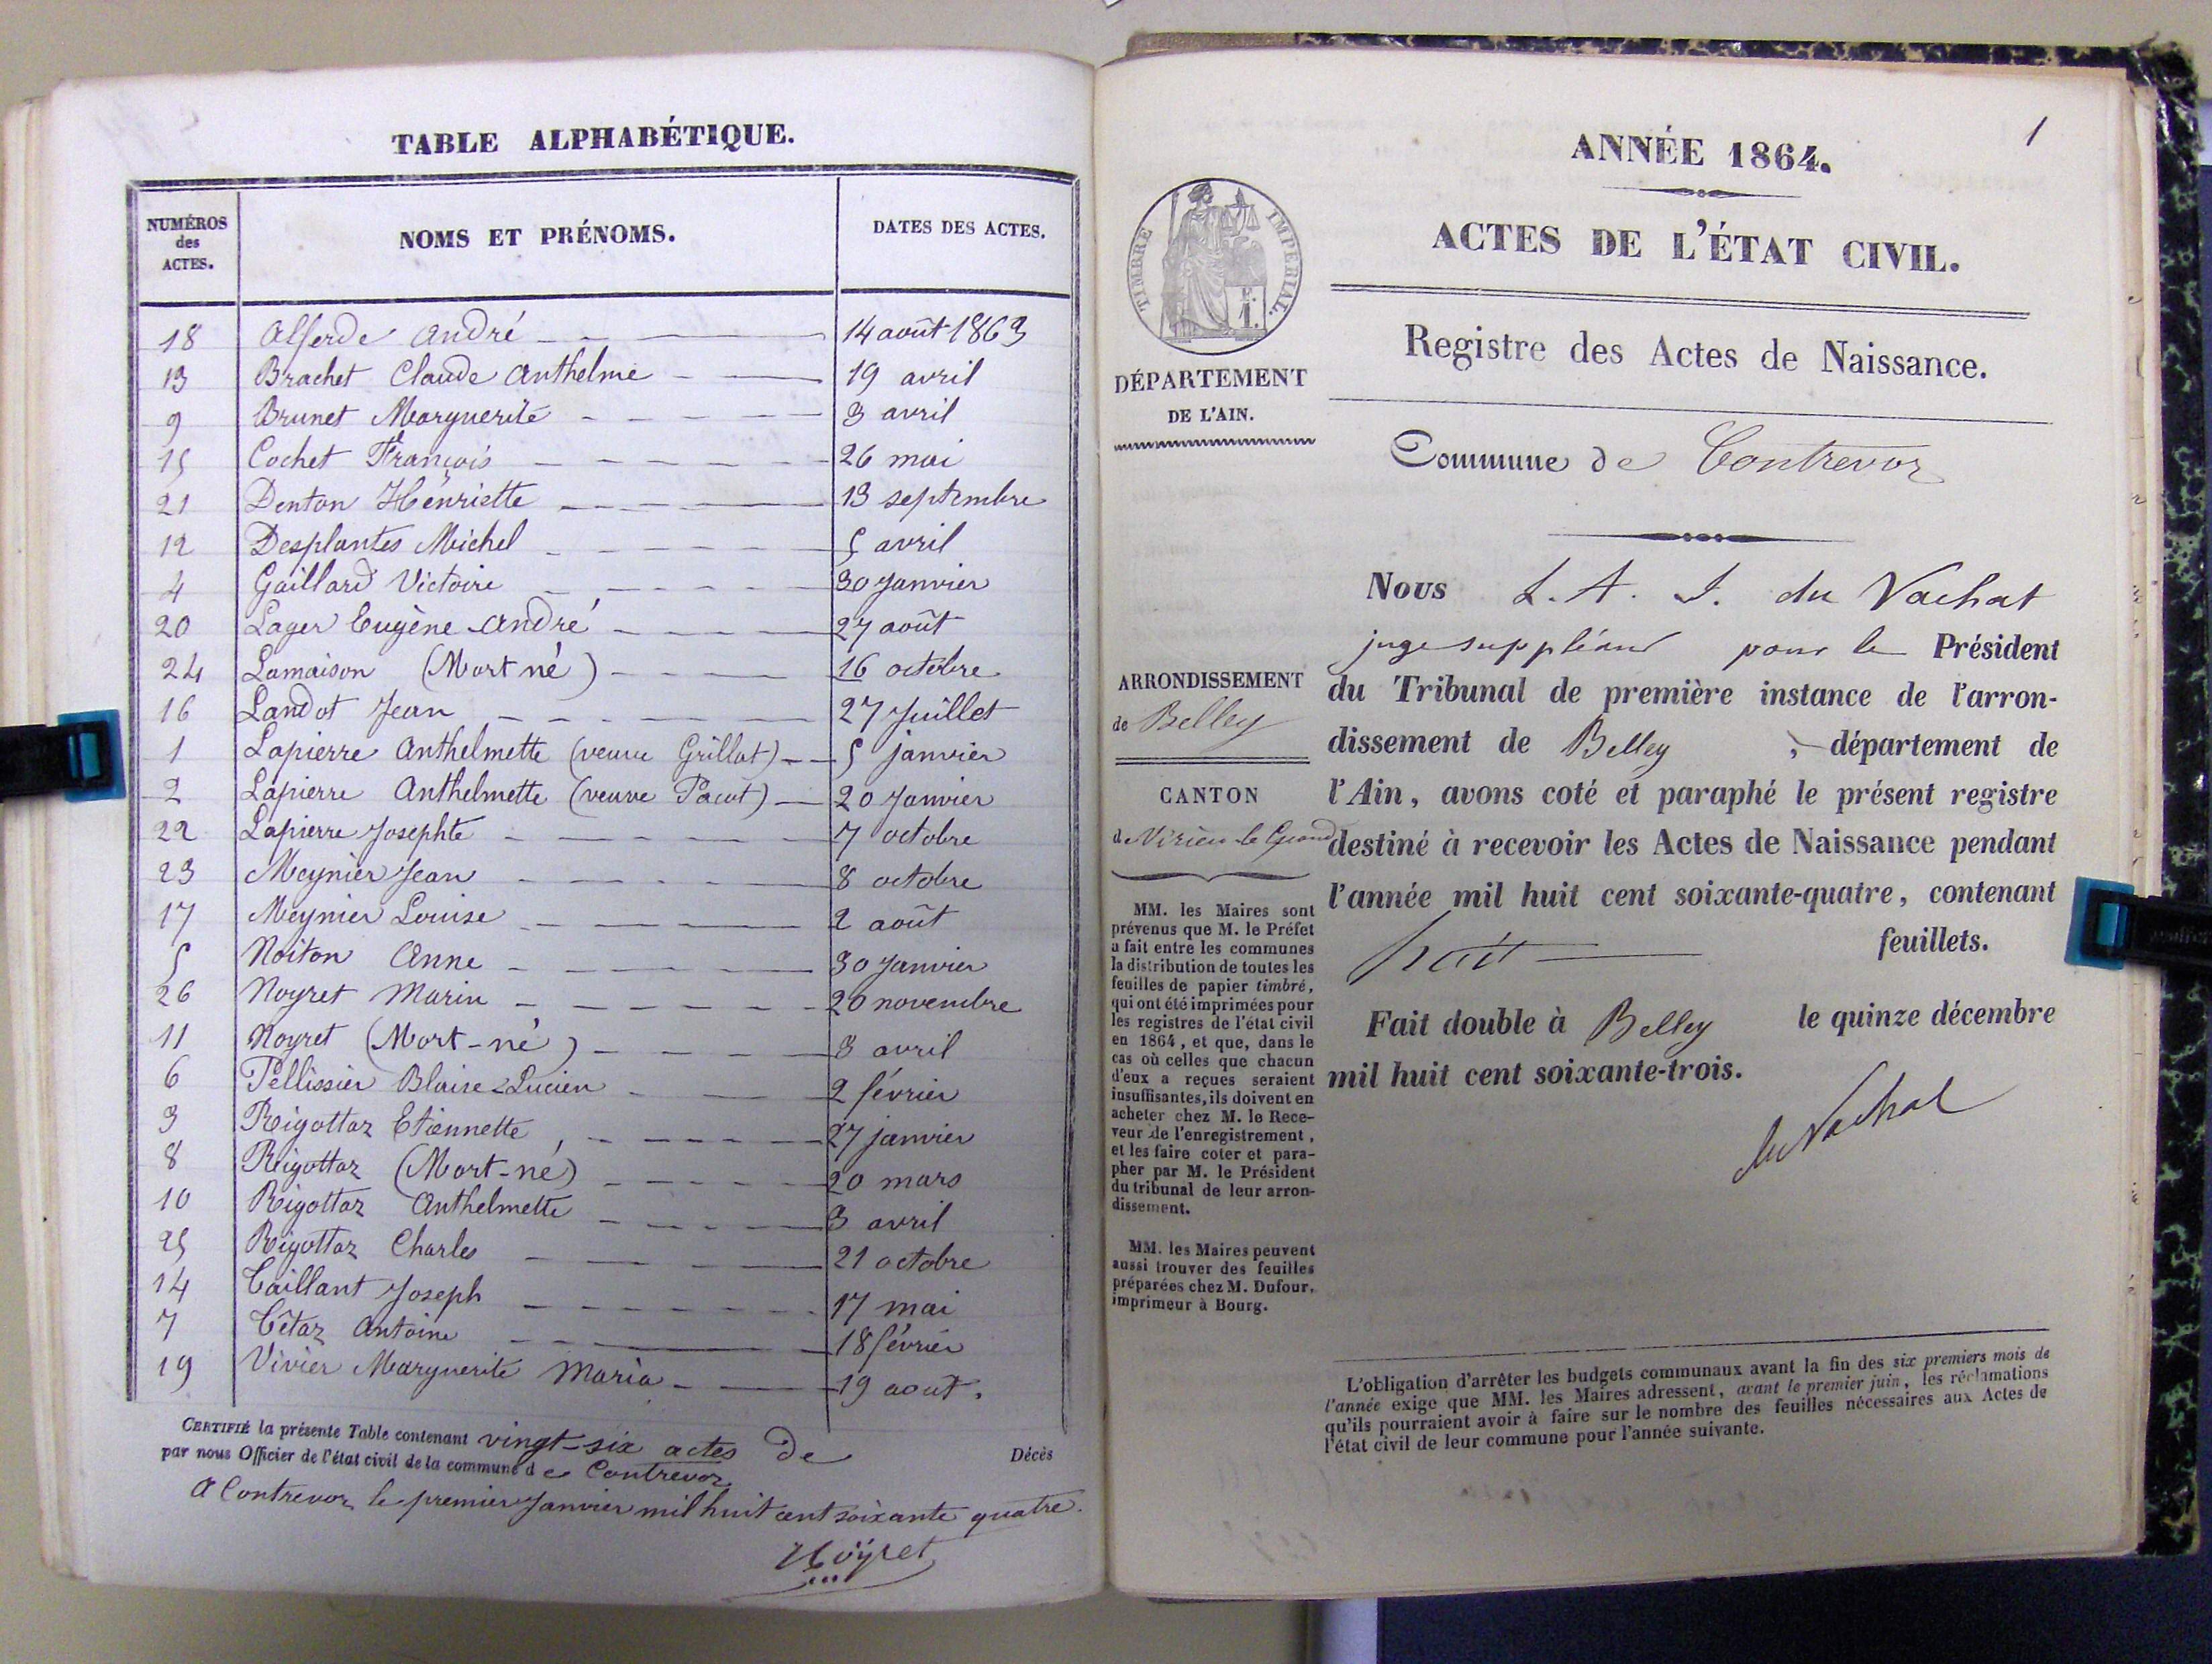 TABLE ALPHABÉTIQUE.
NUMÉROS des ACTES. NOMS ET PRÉNOMS. DATES DES ACTES.
18 Alferde André 14 août 1863
13 Brachet Claude Anthelme 19 avril
9 Brunet Marguerite 3 avril
15 Cochet François 26 mai
21 Denton Henriette 13 septembre
12 Desplantes Michel 5 avril
4 Gaillard Victoire 30 Janvier
20 Lager Eugène André 27 août
24 Lamaison (Mort né) 16 octobre
16 Landot Jean 27 Juillet
1 Lapierre Anthelmette (veuve Grillot) 5 janvier
2 Lapierre Anthelmette (veuve Pacot) 20 Janvier
22 Lapierre Josephte 7 octobre
23 Meynier Jean 8 octobre
17 Meynier Louise 2 août
5 Noiton Anne 30 Janvier
26 Noyret Marin 20 novembre
11 Noyret (Mort-né) 3 avril
6 Pellissier Blaise Lucien 2 février
3 Rigottaz Etiennette 27 janvier
8 Rigottaz (Mort-né) 20 mars
10 Rigottaz Anthelmette 3 avril
25 Rigottaz Charles 21 octobre
14 Taillant Joseph 17 mai
7 Tétaz Antoine 18 février
19 Vivier Marguerite Maria 19 août.
CERTIFIÉ la présente Table contenant vingt-six actes De Décès
par nous Officier de l'état civil de la commune de Contrevoz
A Contrevoz le premier Janvier mil huit cent soixante quatre.
Noyret
1
ANNÉE 1864.
ACTES DE L'ÉTAT CIVIL.
TIMBRE IMPÉRIAL.
1 F.
Registre des Actes de Naissance.
DÉPARTEMENT
DE L'AIN.
Commune de Contrevoz
ARRONDISSEMENT
de Belley
CANTON
de Virieu-le-Grand
MM. les Maires sont
prévenus que M. le Préfet
a fait entre les communes
la distribution de toutes les
feuilles de papier timbré,
qui ont été imprimées pour
les registres de l'état civil
en 1864, et que, dans le
cas où celles que chacun
d'eux a reçues seraient
insuffisantes, ils doivent en
acheter chez M. le Rece-
veur de l'enregistrement,
et les faire coter et para-
pher par M. le Président
du tribunal de leur arron-
dissement.
MM. les Maires peuvent
aussi trouver des feuilles
préparées chez M. Dufour,
imprimeur à Bourg.
Nous L. A. J. du Vachat
juge suppléant pour le Président
du Tribunal de première instance de l'arron-
dissement de Belley, département de
l'Ain, avons coté et paraphé le présent registre
destiné à recevoir les Actes de Naissance pendant
l'année mil huit cent soixante-quatre, contenant
huit feuillets.
Fait double à Belley le quinze décembre
mil huit cent soixante-trois.
du Vachat
L'obligation d'arrêter les budgets communaux avant la fin des six premiers mois de
l'année exige que MM. les Maires adressent, avant le premier juin, les réclamations
qu'ils pourraient avoir à faire sur le nombre des feuilles nécessaires aux Actes de
l'état civil de leur commune pour l'année suivante.